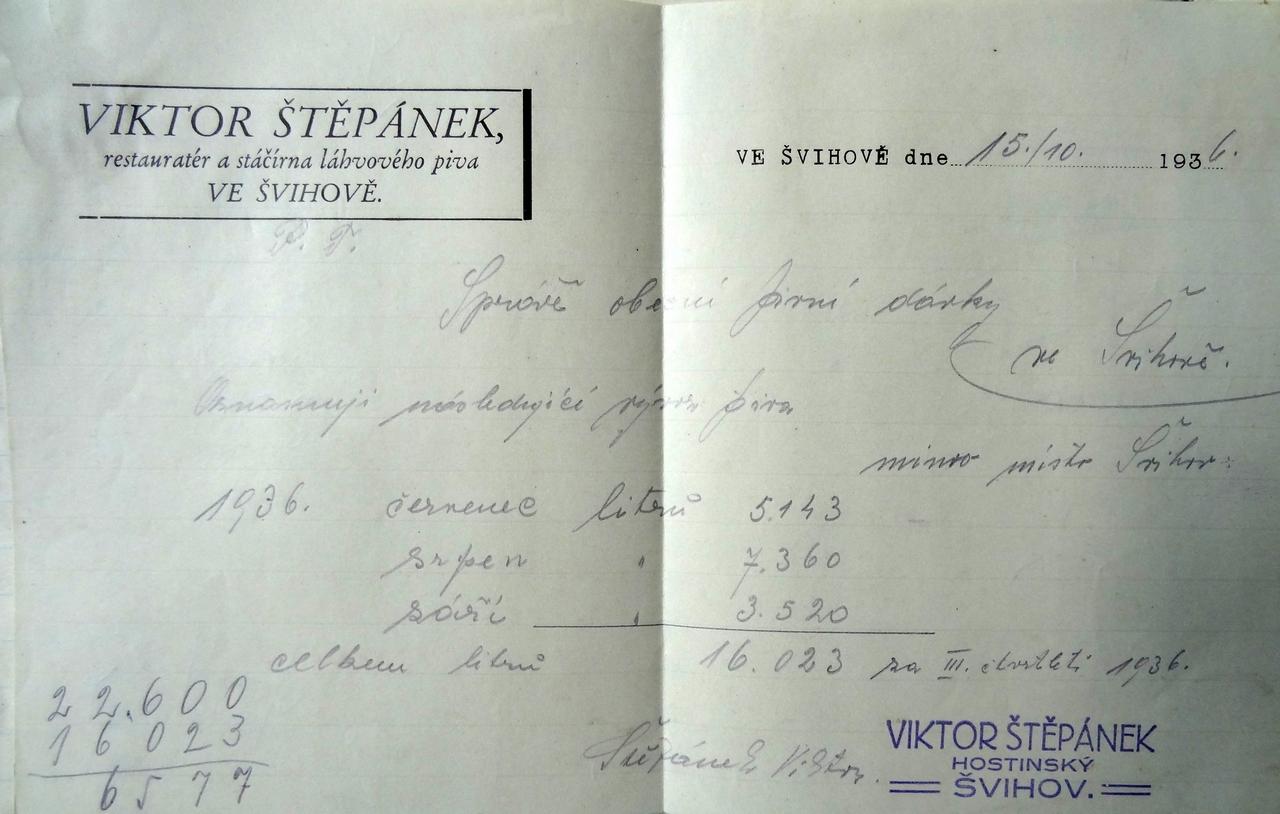 VIKTOR ŠTĚPÁNEK,
restauratér a stáčírna láhvového piva
VE ŠVIHOVĚ.
VE ŠVIHOVĚ dne 15./10. 1936.
P. T.
Správě obecní pivní dávky
ve Švihově.
Oznamuji následující vývoz piva
mimo místo Švihov:
1936. červenec litrů 5.143
srpen " 7.360
září " 3.520
celkem litrů 16.023 za III. čtvrtletí 1936.
22.600
16023
6577
Štěpánek Viktor.
VIKTOR ŠTĚPÁNEK
HOSTINSKÝ
ŠVIHOV.